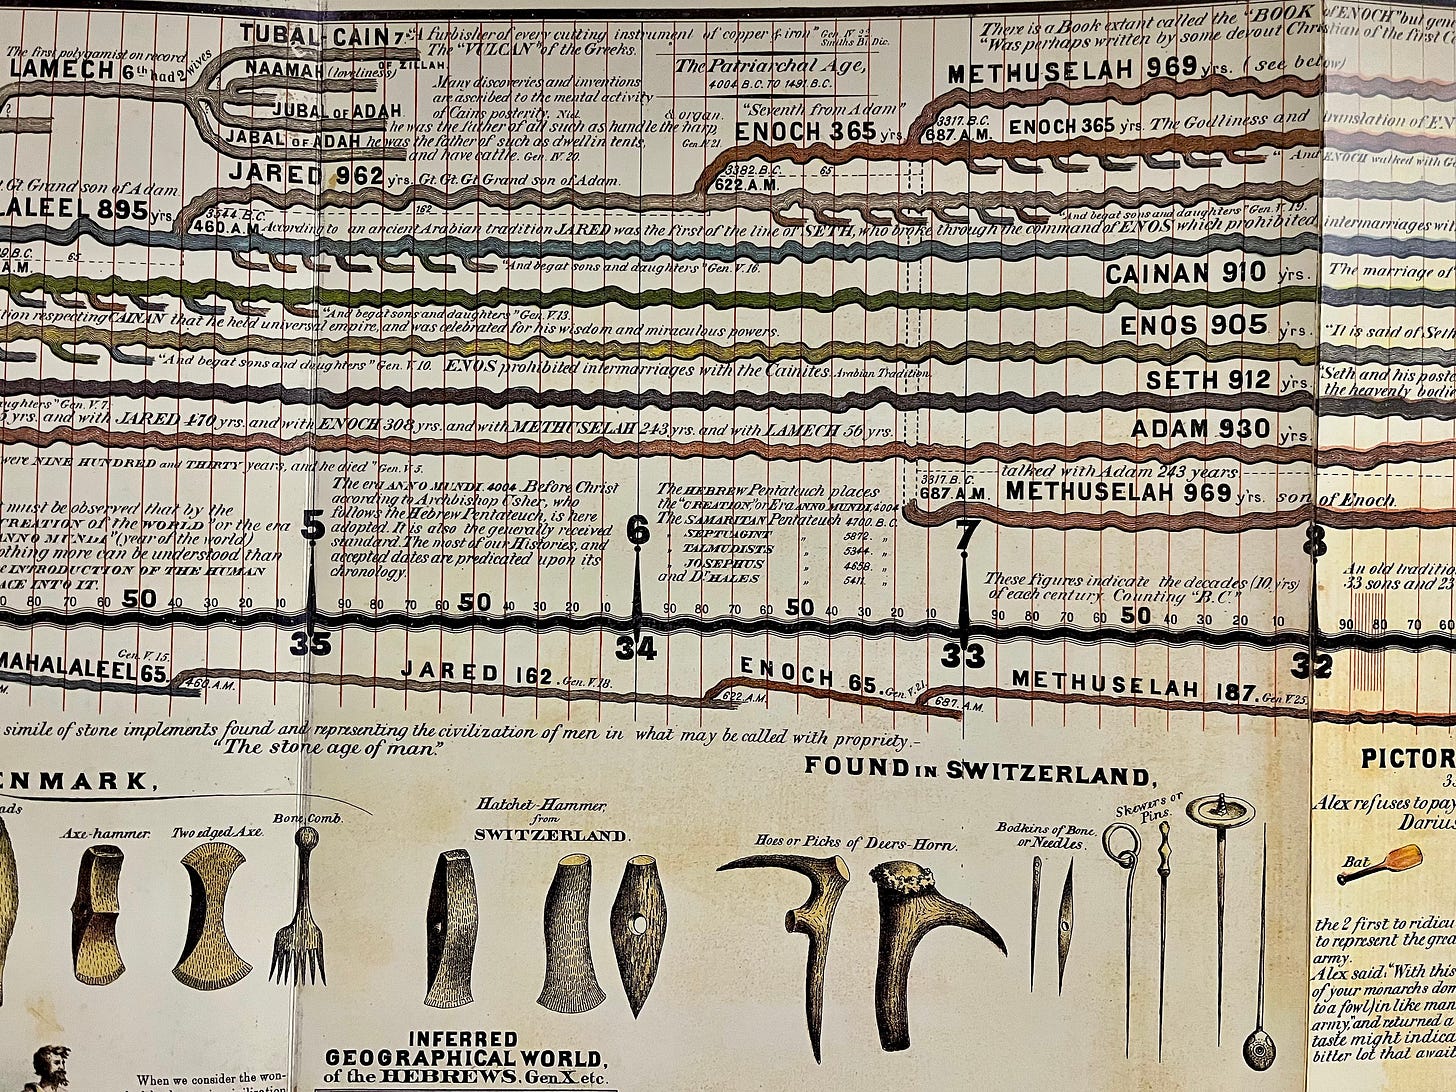 The first polygamist on record
LAMECH 6th had 2 wives
TUBAL-CAIN 7th
OF ZILLAH.
NAAMAH (loveliness)
JUBAL OF ADAH
JABAL OF ADAH
"A furbisher of every cutting instrument of copper & iron" Gen. IV 22
Smiths Bi. Dic.
The "VULCAN" of the Greeks.
Many discoveries and inventions
are ascribed to the mental activity
of Cains posterity.
he was the father of all such as handle the harp
& organ.
Gen. IV. 21.
he was the father of such as dwell in tents,
and have cattle. Gen. IV. 20.
The Patriarchal Age,
4004 B.C. TO 1491. B.C.
There is a Book extant called the "BOOK of ENOCH" but gen
"Was perhaps written by some devout Christian of the first C
METHUSELAH 969 yrs. (see below)
"Seventh from Adam"
ENOCH 365 yrs.
3317. B.C.
687. A.M.
ENOCH 365 yrs. The Godliness and translation of EN
"And ENOCH walked with G
JARED 962 yrs. Gt. Gt. Gt Grand son of Adam.
3382. B.C.
622. A.M.
65
t. Gt Grand son of Adam.
LALEEL 895 yrs.
3544. B.C.
460. A.M.
162
"And begat sons and daughters" Gen. V. 19.
According to an ancient Arabian tradition JARED was the first of the line of SETH, who broke through the command of ENOS which prohibited intermarriages wit
9. B.C.
A.M.
65
"And begat sons and daughters" Gen. V. 16.
CAINAN 910 yrs.
The marriage of
"And begat sons and daughters" Gen. V. 13.
tion respecting CAINAN that he held universal empire, and was celebrated for his wisdom and miraculous powers.
ENOS 905 yrs.
"It is said of Seth
"And begat sons and daughters" Gen. V. 10. ENOS prohibited intermarriages with the Cainites. Arabian Tradition.
SETH 912 yrs.
"Seth and his poste
the heavenly bodie
aughters" Gen. V. 7.
yrs. and with JARED 470 yrs. and with ENOCH 308 yrs. and with METHUSELAH 243 yrs. and with LAMECH 56 yrs.
ADAM 930 yrs.
were NINE HUNDRED and THIRTY years, and he died" Gen. V. 5.
talked with Adam 243 years
3317. B.C.
687. A.M.
METHUSELAH 969 yrs. son of Enoch.
must be observed that by the
CREATION of the WORLD" or the era
ANNO MUNDI" (year of the world)
othing more can be understood than
e INTRODUCTION OF THE HUMAN
ACE INTO IT.
The era ANNO MUNDI, 4004 Before Christ
according to Archbishop Usher, who
follows the Hebrew Pentateuch, is here
adopted. It is also the generally received
standard. The most of our Histories, and
accepted dates are predicated upon its
chronology.
The HEBREW Pentateuch places
the "CREATION," or Era ANNO MUNDI, 4004
The SAMARITAN Pentateuch 4700. B.C.
" SEPTUAGINT " 5872. "
" TALMUDISTS " 5344. "
" JOSEPHUS " 4658. "
and Dr. HALES " 5411. "
These figures indicate the decades (10 yrs)
of each century. Counting "B.C."
An old traditio
33 sons and 23
5 6 7 8
80 70 60 50 40 30 20 10 90 80 70 60 50 40 30 20 10 90 80 70 60 50 40 30 20 10 90 80 70 60 50 40 30 20 10 90 80 70 60
35 34 33 32
MAHALALEEL 65. Gen. V. 15.
460. A.M.
JARED 162. Gen. V. 18.
622. A.M.
ENOCH 65. Gen. V. 21.
687. A.M.
METHUSELAH 187. Gen. V. 25.
simile of stone implements found and representing the civilization of men in what may be called with propriety.-
"The stone age of man."
ENMARK,
ads
Axe-hammer.
Two edged Axe.
Bone Comb.
Hatchet-Hammer,
from
SWITZERLAND.
FOUND IN SWITZERLAND,
Hoes or Picks of Deers-Horn.
Bodkins of Bone.
or Needles.
Skewers or
Pins.
PICTOR
Alex refuses to pay
Darius
Bat
the 2 first to ridicu
to represent the grea
army.
Alex said, "With this
of your monarchs dom
to a fowl) in like man
army," and returned a
taste might indica
bitter lot that await
INFERRED
GEOGRAPHICAL WORLD,
of the HEBREWS. Gen X. etc.
When we consider the won-